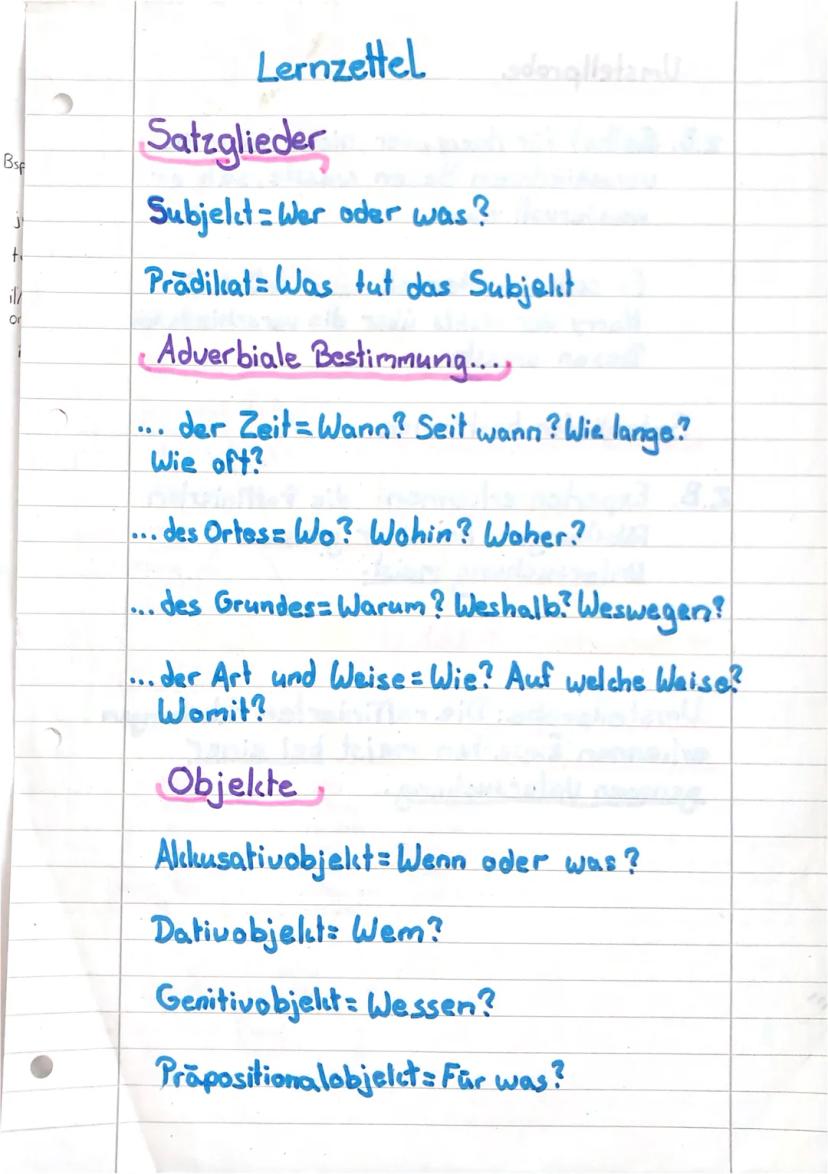 Lernzettel
Satzglieder
Subjekt = Wer oder was?
Prädikat = Was tut das Subjekt
Adverbiale Bestimmung...
... der Zeit = Wann? Seit wann? Wie lange?
Wie oft?
... des Ortes = Wo? Wohin? Woher?
... des Grundes = Warum? Weshalb? Weswegen?
... der Art und Weise = Wie? Auf welche Weise?
Womit?
Objekte
Akkusativobjekt = Wenn oder was?
Dativobjekt = Wem?
Genitivobjekt = Wessen?
Präpositionalobjekt = Für was?